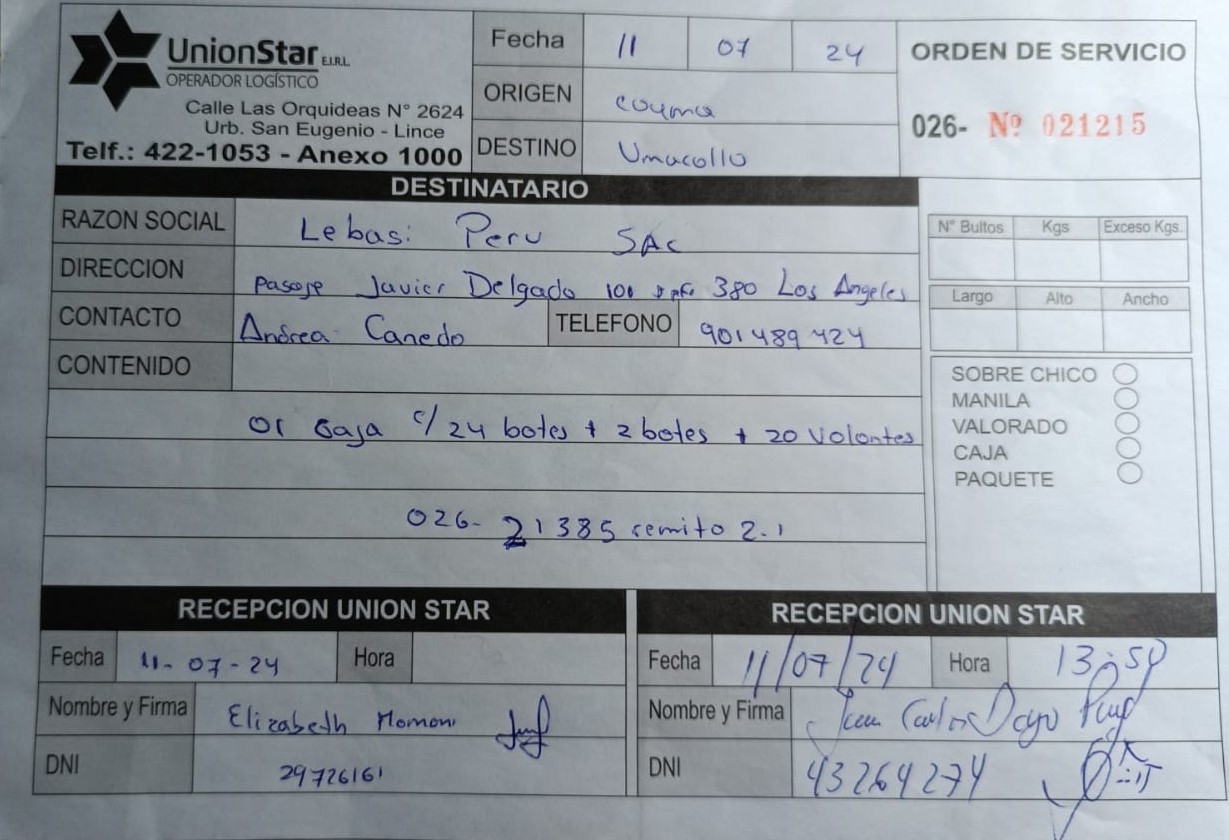 UnionStar E.I.R.L.
OPERADOR LOGÍSTICO
Calle Las Orquideas N° 2624
Urb. San Eugenio - Lince
Telf.: 422-1053 - Anexo 1000
Fecha 11 07 24
ORIGEN cayma
DESTINO Umacollo
ORDEN DE SERVICIO
026- Nº 021215
DESTINATARIO
RAZON SOCIAL Lebasi Peru SAC
DIRECCION Pasaje Javier Delgado 101 380 Los Angeles
CONTACTO Andrea Canedo TELEFONO 901489424
CONTENIDO
01 caja c/24 botes + 2 botes + 20 volantes
026- 21385 remito 2.1
N° Bultos Kgs Exceso Kgs.
Largo Alto Ancho
SOBRE CHICO
MANILA
VALORADO
CAJA
PAQUETE
RECEPCION UNION STAR
Fecha 11-07-24 Hora
Nombre y Firma Elizabeth Mamani
DNI 29726161
RECEPCION UNION STAR
Fecha 11/07/24 Hora 13:59
Nombre y Firma Juan Carlos
DNI 43264274